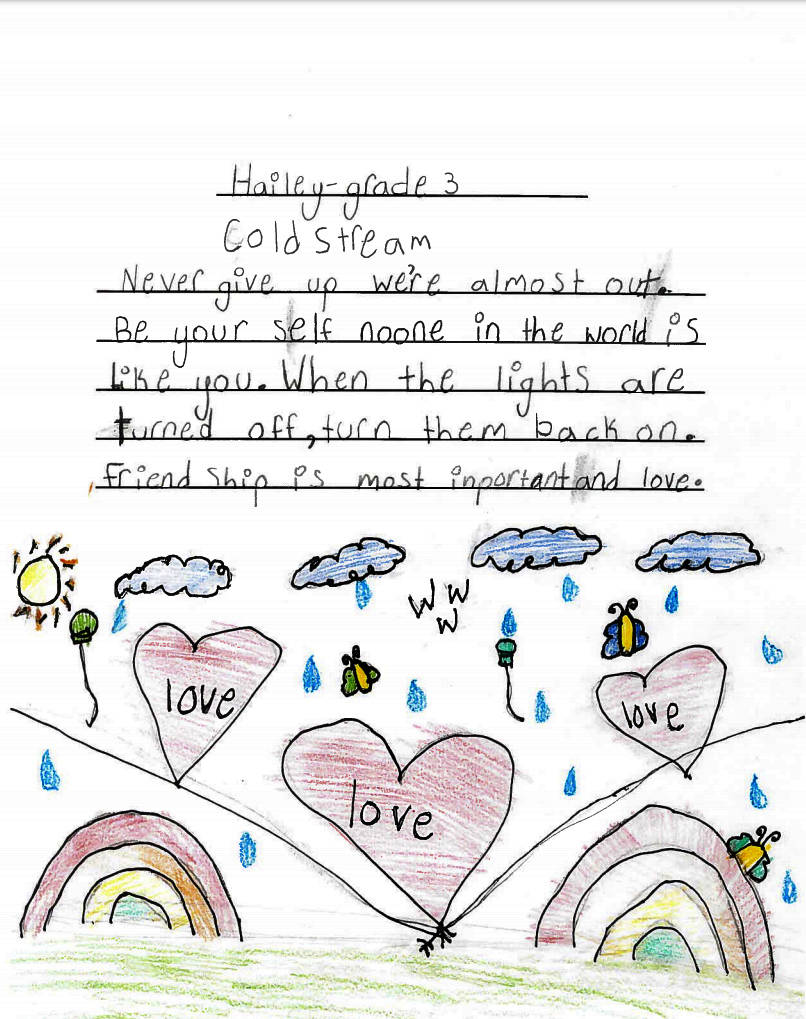 Hailey-grade 3
Coldstream
Never give up we're almost out.
Be your self noone in the world is
like you. When the lights are
turned off, turn them back on.
friend ship is most inportant and love.
W W
W
love
love
love